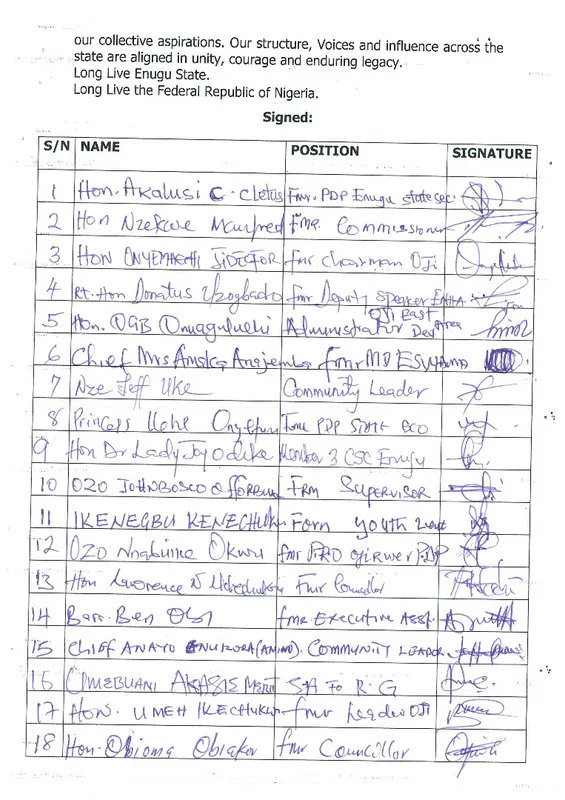 our collective aspirations. Our structure, Voices and influence across the
state are aligned in unity, courage and enduring legacy.
Long Live Enugu State.
Long Live the Federal Republic of Nigeria.
Signed:
S/N NAME POSITION SIGNATURE
1 Hon. Akalusi C. Cletus Fmr. PDP Enugu state sec.
2 Hon Nzekwe Manfred Fmr. Commissioner
3 HON fmr chairman OJI
4 Rt. Hon Donatus Uzogbado fmr Deputy Speaker ENHA
5 Hon. OGB Onuaguluchi Administrator Oji East Dev Area
6 Chief Mrs fmr MD
7 Nze Jeff Uke Community Leader
8 Princess Uche PDP State
9 Hon Dr Lady Joy Odike Member 3 CSC Enugu
10 OZO JOHNBOSCO FRM SUPERVISOR
11 IKENEGBU KENECHUKWU Form youth
12 OZO Nnabuife Okwu fmr PRO PDP
13 Hon Lawrence N Fmr Councillor
14 Barr. Ben Obi fmr Executive Asst.
15 CHIEF ANAYO COMMUNITY LEADER
16 AKABIE SA To R.G
17 HON. UMEH IKECHUKWU fmr Leader OJI
18 Hon. Obioma Obiakor fmr Councillor